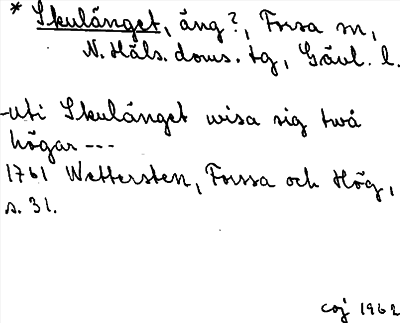 * Skulänget, äng?, Forsa sn,
N. Häls. doms. tg, Gävl. l.
-uti Skulänget wisa sig twå
högar ---
1761 Wettersten, Forssa och Hög,
s. 31.
coj 1962